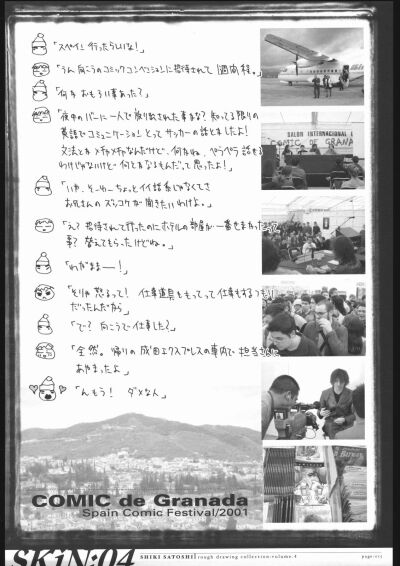 「スペイン行ったらしいな！」
「うん 向こうのコミックコンベンションに招待されて 1週間程。」
「何かおもろい事あった？」
「夜中のバーに一人で放り出された事かな？ 知ってる限りの
英語でコミュニケーションとってサッカーの話とかしたよ！
文法とかメチャメチャなんだけど、何かね、ぺらぺら話せる
わけじゃないけど 何とかなるもんだって思ったよ！」
「いや、そーゆーちょっとイイ話系じゃなくてさ
お兄さんの ズッコケが聞きたいわけよ。」
「え？ 招待されて行ったのにホテルの部屋が一番せまかったって
事？ 替えてもらったけどね。」
「わがまま——！」
「そりゃ 怒るって！ 仕事道具ももってって仕事もするつもり
だったんだから」
「で？ 向こうで仕事した？」
「全然。 帰りの成田エクスプレスの車内で担当さんに
あやまったよ」
「んもう！ ダメな人」
SALON INTERNACIONAL
COMIC DE GRANA
COMIC de Granada
Spain Comic Festival/2001
SKiN:04
SHIKI SATOSHI rough drawing collection:volume.4